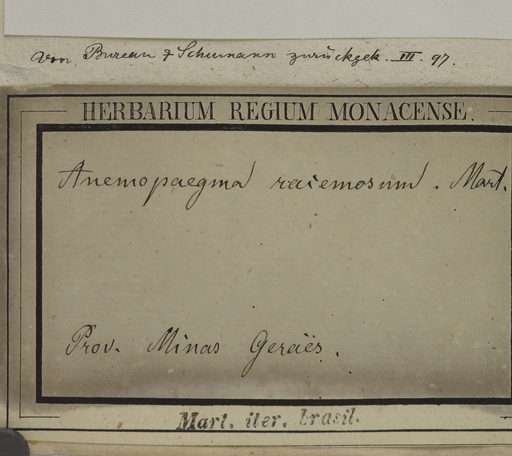 Von Bureau & Schumann zurückgek. III. 97.
HERBARIUM REGIUM MONACENSE.
Anemopaegma racemosum. Mart.
Prov. Minas Geraës.
Mart. iter. brasil.